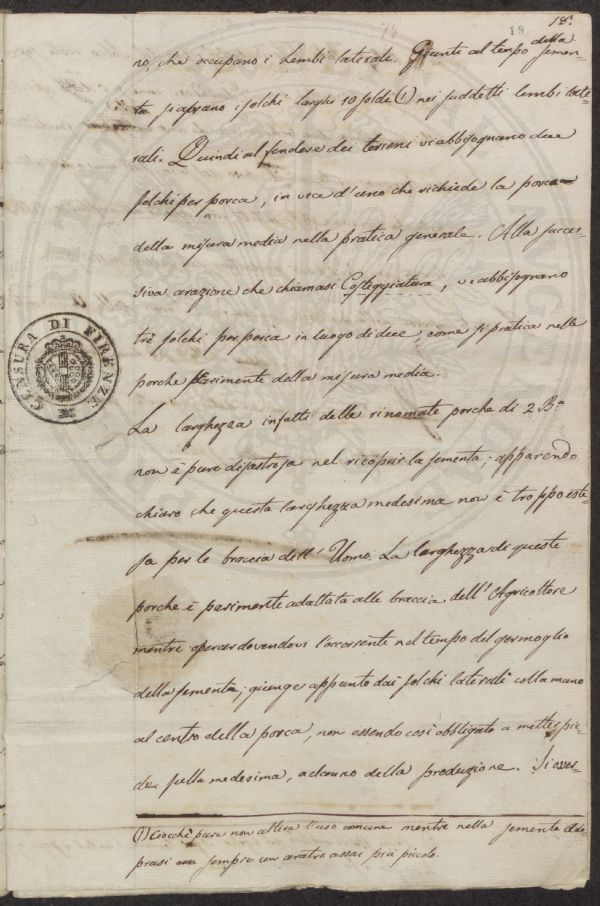 18.
78
19
no, che occupano i Lembi laterali. Giunti al tempo della semen-
ta si aprano i solchi larghi 10 soldi (1) nei suddetti lembi late-
rali. Quindi al fendere dei terreni vi abbisognano due
solchi per porca, in vece d'uno che richiede la porca
della misura media nella pratica generale. Alla succes-
siva arazione che chiamasi Costeggiatura, vi abbisognano
trè solchi per porca in luogo di due, come si pratica nelle
porche parimente della misura media.
La larghezza infatti delle rinomate porche di 2 B.a
non è pure disastrosa nel ricoprir la sementa; apparendo
chiaro che questa larghezza medesima non è troppo este-
sa per le braccia dell'Uomo. La larghezza di queste
porche è parimente adattata alle braccia dell'Agricoltore
mentre dovendovi l'occorrente nel tempo del germoglio
della sementa, giunge appunto dai solchi laterali colla mano
al centro della porca, non essendo così obbligato a metter pie-
de sulla medesima, a danno della produzione. Si osser-
(1) Ciocchè pure non altera l'uso comune mentre nella sementa ado-
prasi sempre un aratro assai più piccolo.
CENSURA DI FIRENZE